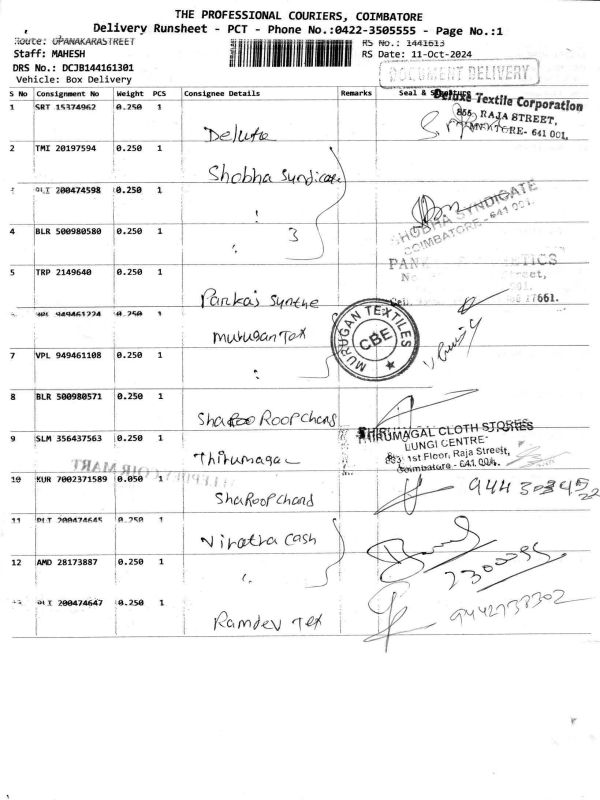 THE PROFESSIONAL COURIERS, COIMBATORE
Delivery Runsheet - PCT - Phone No.:0422-3505555 - Page No.:1
Route: OPANAKARASTREET
RS No.: 1441613
Staff: MAHESH
RS Date: 11-Oct-2024
DRS No.: DCJB144161301
DOCUMENT DELIVERY
Vehicle: Box Delivery
S No Consignment No Weight PCS Consignee Details Remarks Seal &
Deluxe Textile Corporation
855, RAJA STREET,
641 001.
1 SRT 15374962 0.250 1
Delute
2 TMI 20197594 0.250 1
Shobha Syndicate
200474598 0.250 1
SHOBHA SYNDICATE
COIMBATORE - 641 001.
4 BLR 500980580 0.250 1
3
5 TRP 2149640 0.250 1
Pankaj Synthe
949461224 0.250 1
Murugan Tex
MURUGAN TEXTILES
CBE
7 VPL 949461108 0.250 1
8 BLR 500980571 0.250 1
Sharoo Roopchand
THIRUMAGAL CLOTH STORES
LUNGI CENTRE
1st Floor, Raja Street,
Coimbatore - 641 001.
9 SLM 356437563 0.250 1
Thirumagal
10 KUR 7002371589 0.050 1
Sharoopchand
11 200474645 0.250 1
Viratra Cash
12 AMD 28173887 0.250 1
200474647 0.250 1
Ramdev Tex
9442733302